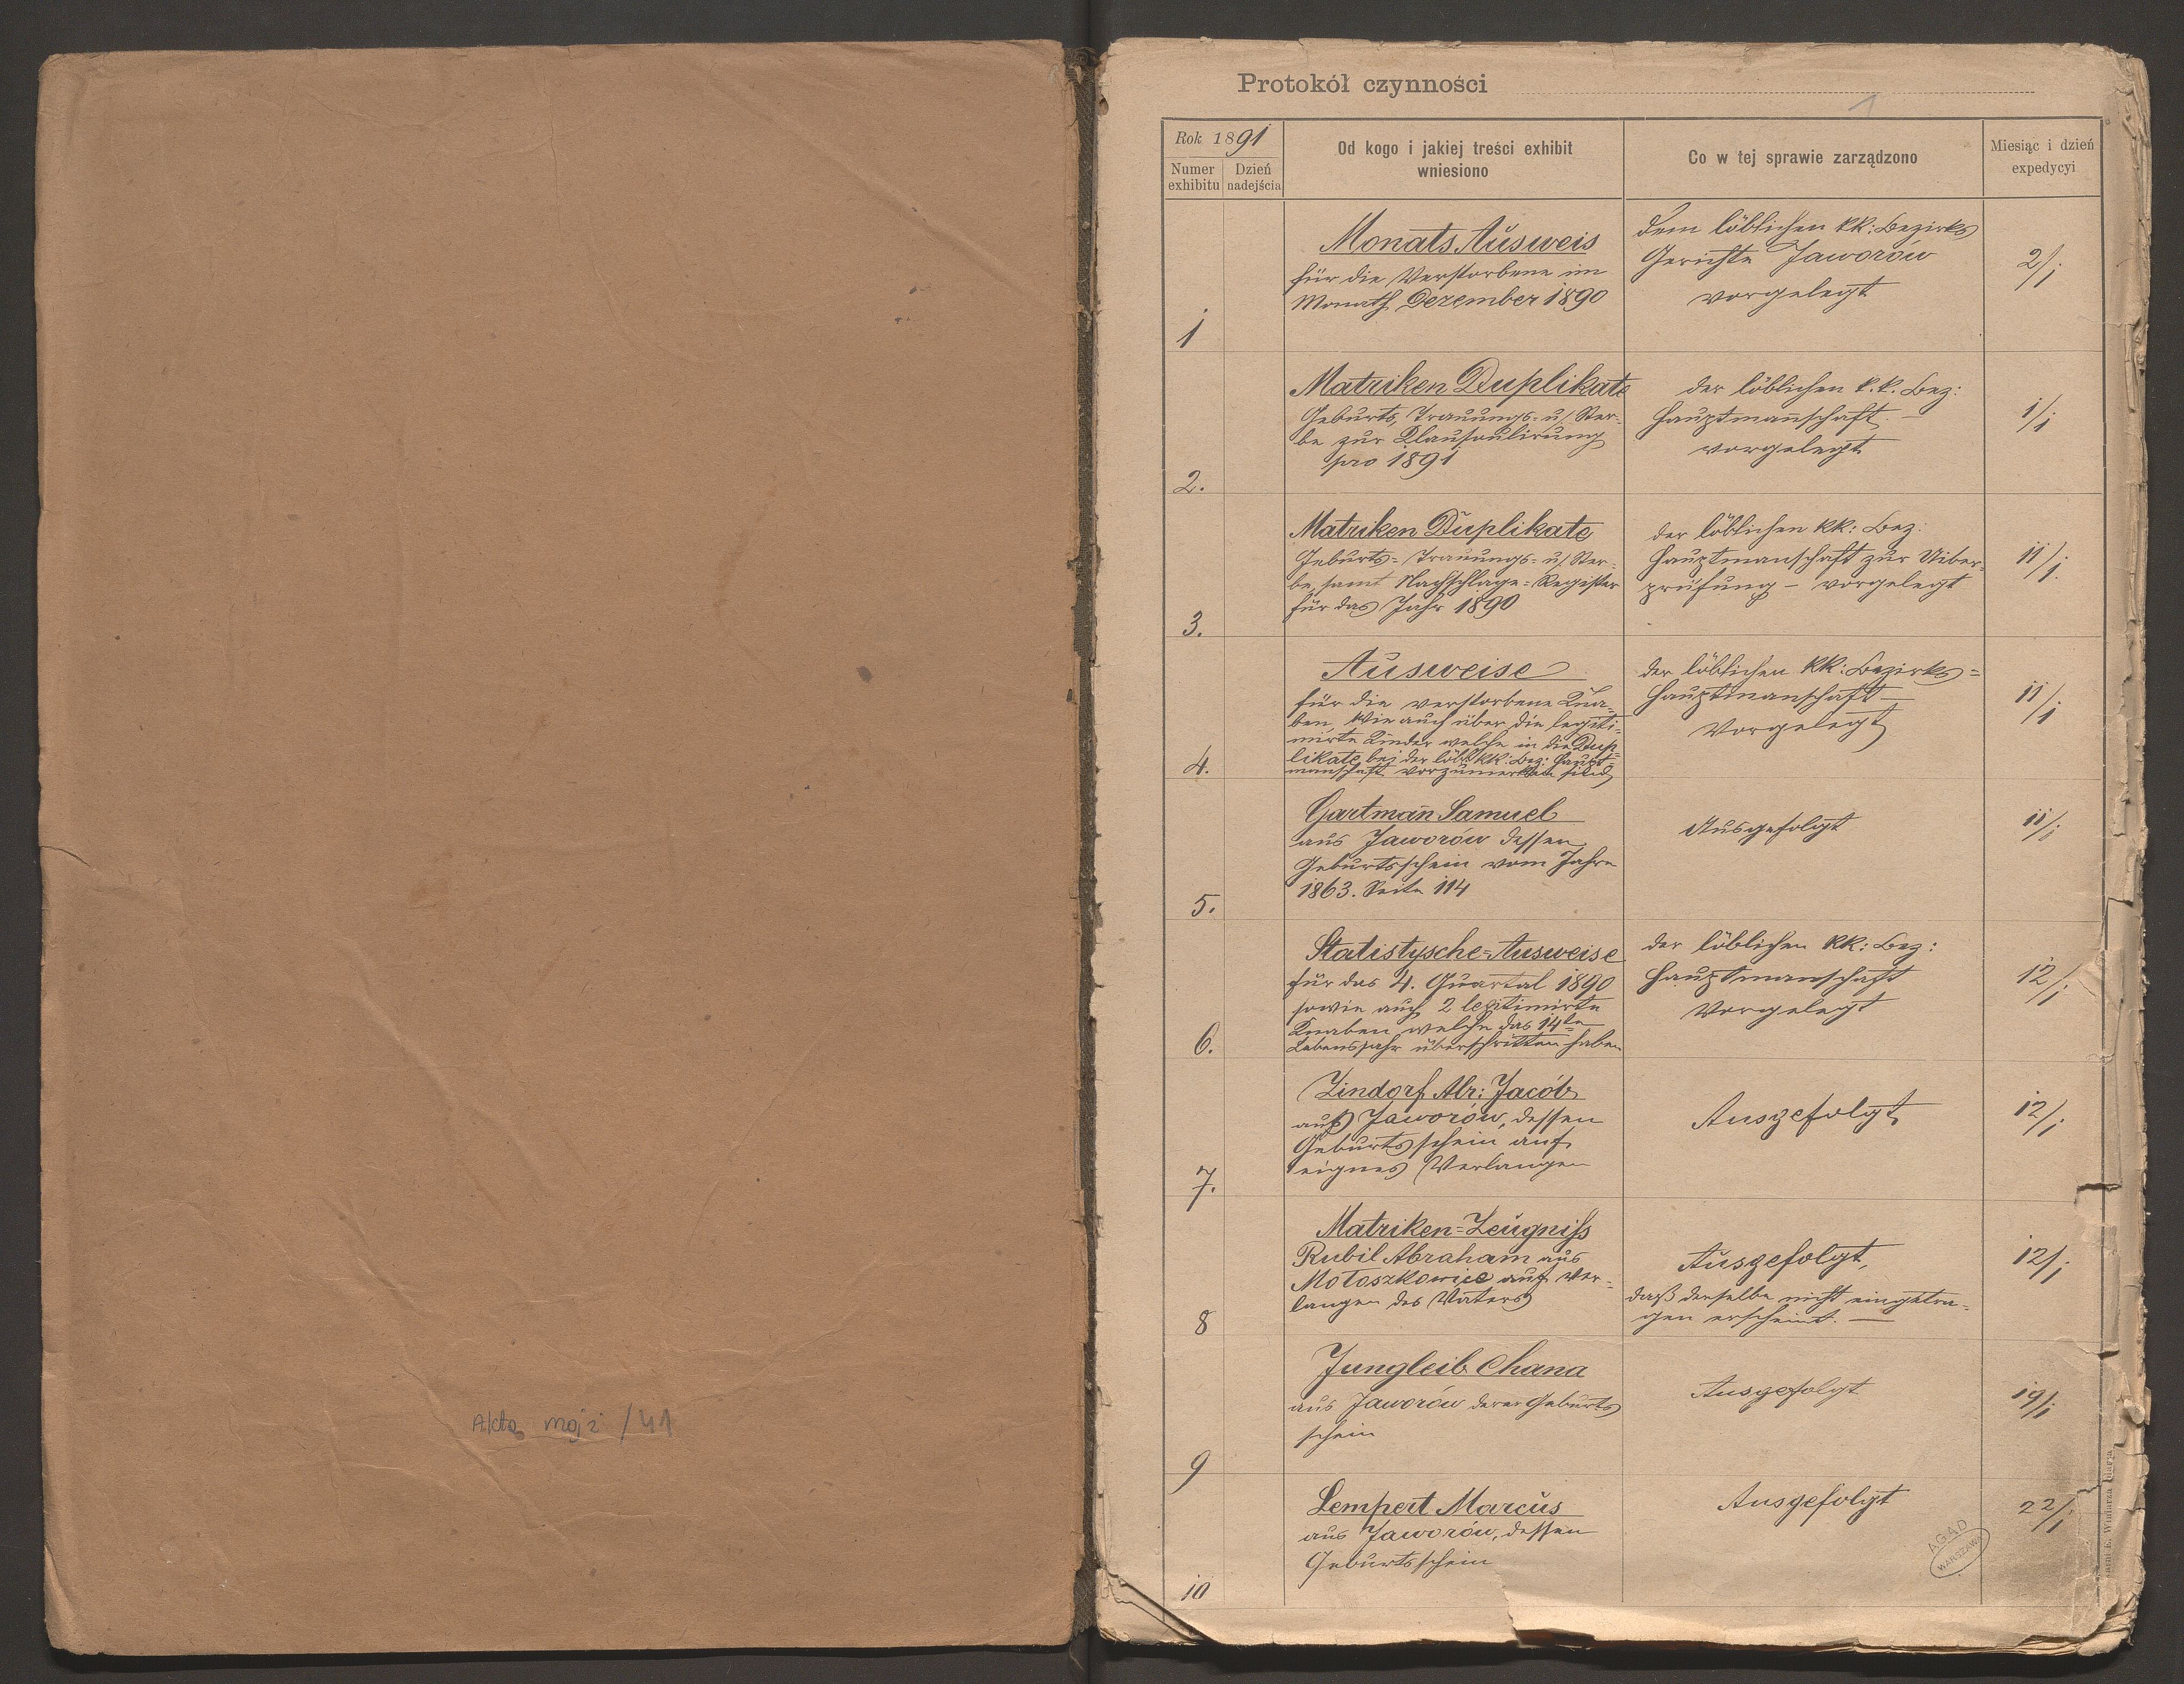 Akta mojż /41
Protokół czynności
1
Rok 1891
Numer exhibitu
Dzień nadejścia
Od kogo i jakiej treści exhibit
wniesiono
Co w tej sprawie zarządzono
Miesiąc i dzień
expedycyi
1
Monats Ausweis
für die Verstorbene im
Monath Dezember 1890
dem löblichen kk: Bezirks
Gerichte Jaworów
vorgelegt
2/1
2.
Matriken Duplikate
Geburts, Trauungs= u/ Ster-
be zur Klausulirung
pro 1891
der löblichen k.k. Bez:
Hauptmannschaft —
vorgelegt
1/1
3.
Matriken Duplikate
Geburts= Trauungs= u/ Ster-
be, samt Nachschlage= Register
für das Jahr 1890
der löblichen kk: Bez:
Hauptmanschaft zur Uiber-
prüfung — vorgelegt
11/1.
4.
Ausweise
für die verstorbene Kna-
ben, wie auch über die legiti-
mirte Kinder welche in die Dup-
likate bei der löbl kk: Bez: Haupt
manschaft vorzumerken sind
der löblichen kk: Bezirks=
Hauptmanschaft —
Vorgelegt
11/1
5.
Gartman̄ Samuel
aus Jaworów dessen
Geburtsschein vom Jahre
1863. Seite 114
Ausgefolgt
11/1
6.
Statistysche=Ausweise
für das 4. Quartal 1890
sowie auch 2 legitimirte
Knaben welche das 14te
Lebensjahr überschritten haben
der löblichen kk: Bez:
Hauptmanschaft
Vorgelegt
12/1
7.
Lindorf Abr: Jacób
aus Jaworów, dessen
Geburtsschein auf
eignes Verlangen
Ausgefolgt
12/1
8
Matriken=Zeugniss
Rubil Abraham aus
Mołoszkowice auf Ver-
langen des Vaters
Ausgefolgt,
daß derselbe nicht eingetra-
gen erscheint. —
12/1
9
Jungleib Chana
aus Jaworów deren Geburts
schein
Ausgefolgt
19/1
10
Lempert Marcus
aus Jaworów, dessen
Geburtsschein
Ausgefolgt
22/1
AGAD
WARSZAWA
E. Winiarza